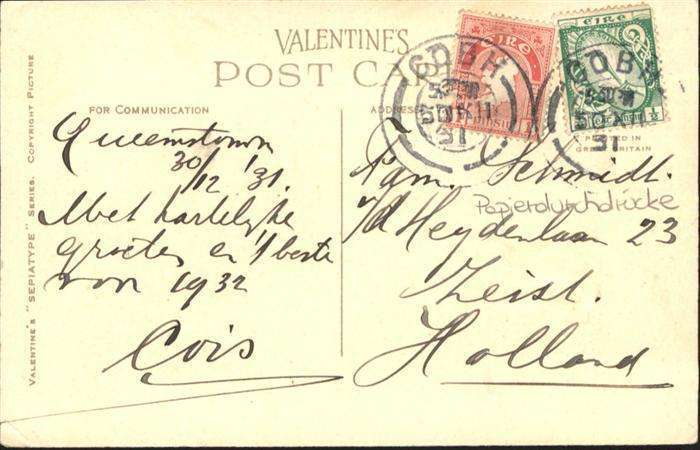 VALENTINE'S
POST CARD
FOR COMMUNICATION
ADDRESS
PRINTED IN
GREAT BRITAIN
VALENTINE'S "SEPIATYPE" SERIES. COPYRIGHT PICTURE
ÉIRE
ÉIRE
COBH
COBH
31
Queenstown
30/12 '31.
Met hartelijke
groeten en 't beste
von 1932
Cois
Fam. Schmidt.
Papierdurchdrücke
v/d Heydenlaan 23
Zeist.
Holland